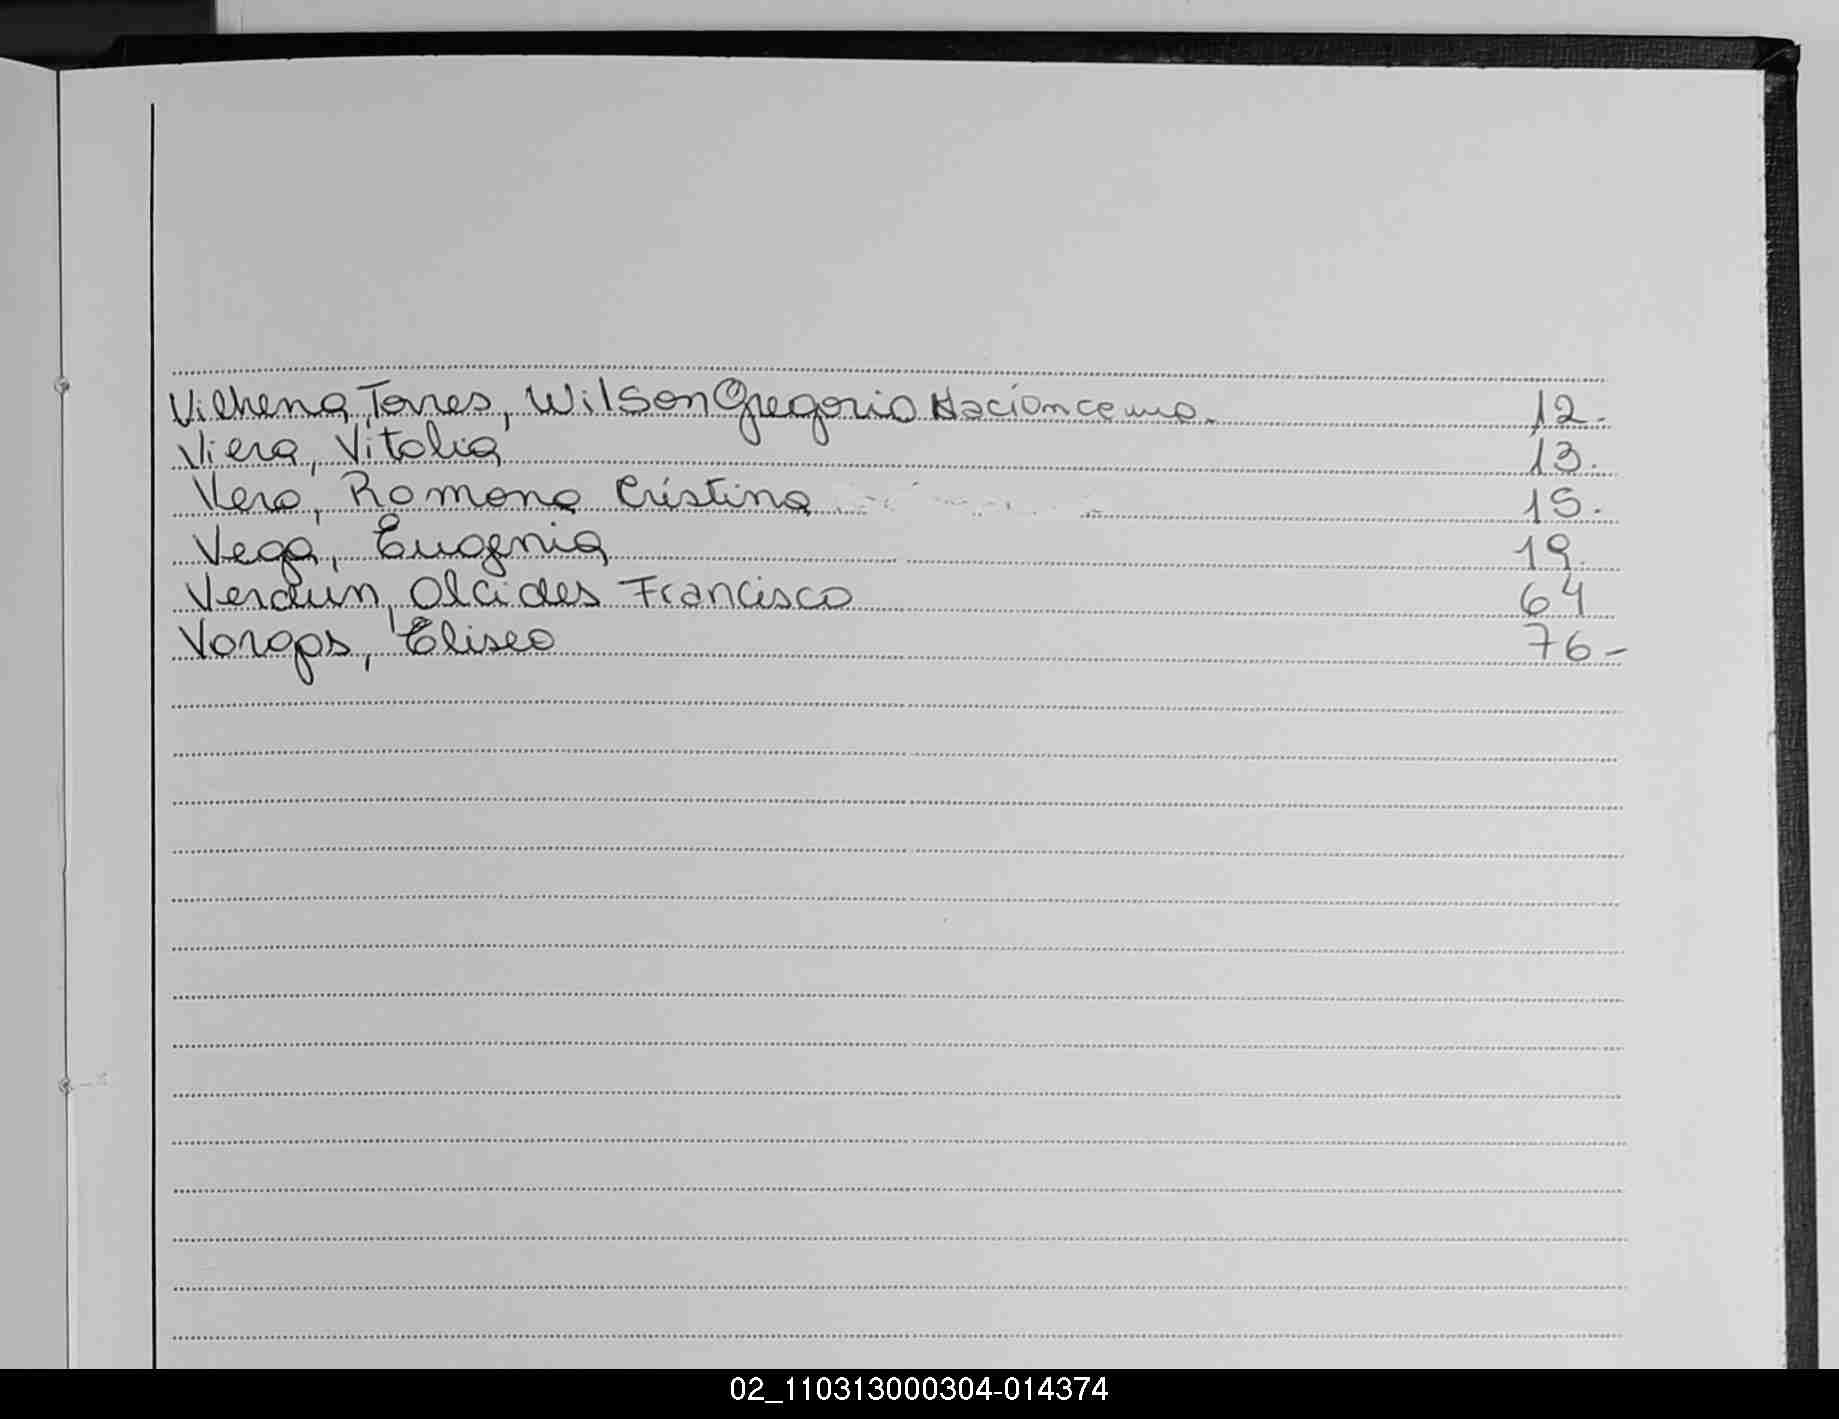 Vilhena Torres, Wilson Gregorio Nacionceno. 12.
Viera, Vitalia 13.
Vera, Ramona Cristina 15.
Vega, Eugenia 19.
Verdun, Alcides Francisco 64
Vargas, Eliseo 76-
02_110313000304-014374